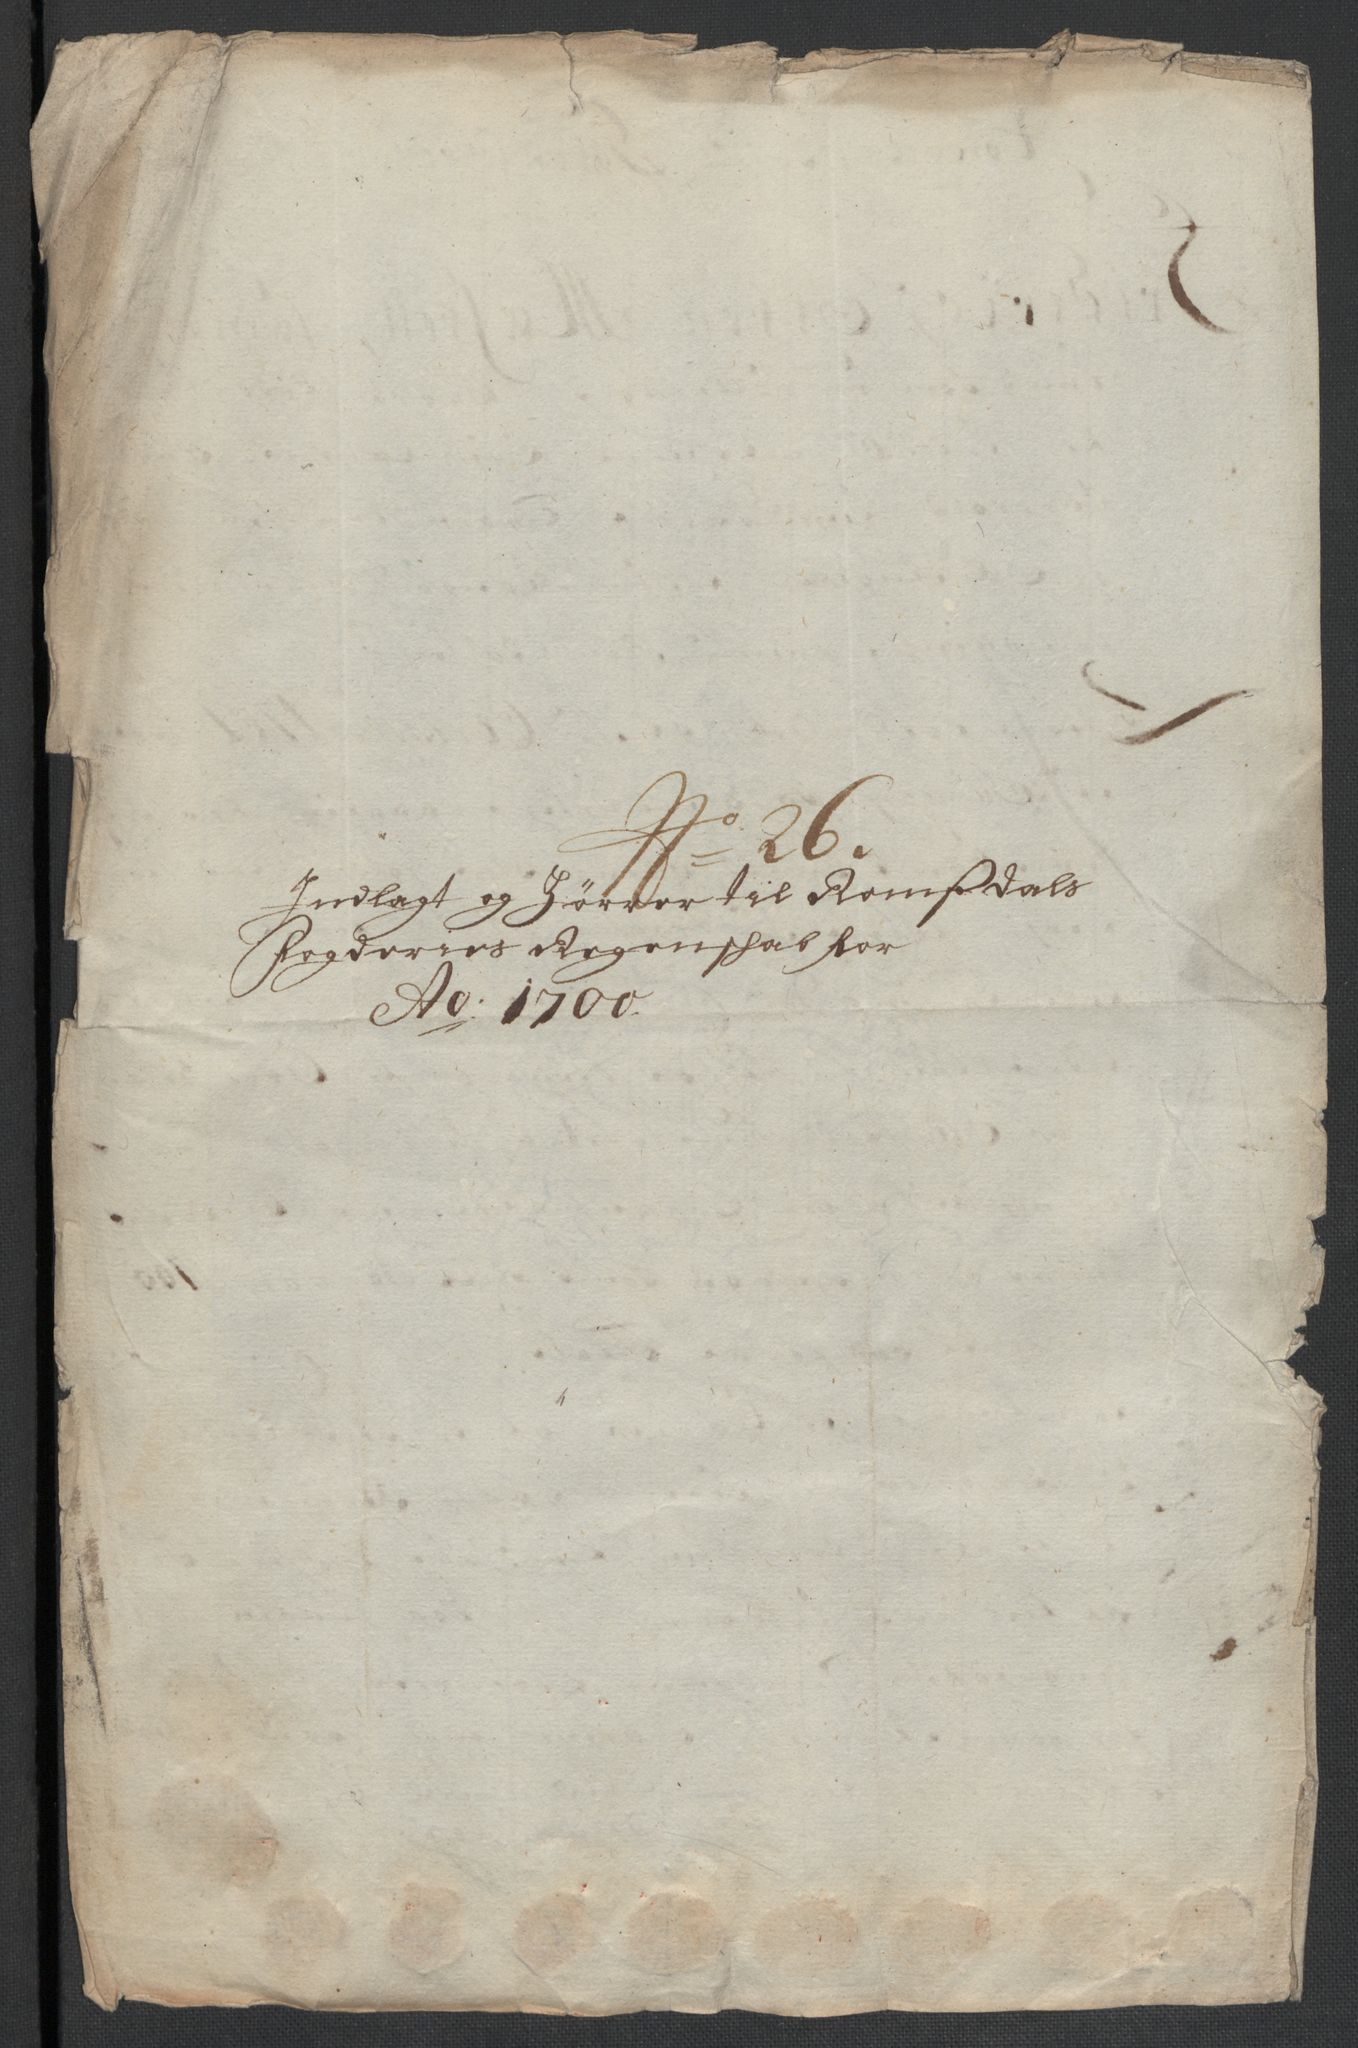 No 26.
Indlagt og Hörrer til Romßdals
Fogderies Regenschab for
Ao: 1700.